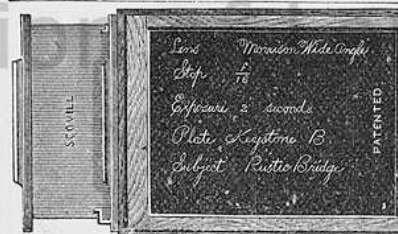 SCOVILL
Lens Morrison Wide Angle.
Stop, F/16
Exposure, 2 seconds
Plate, Keystone B.
Subject Rustic Bridge
PATENTED